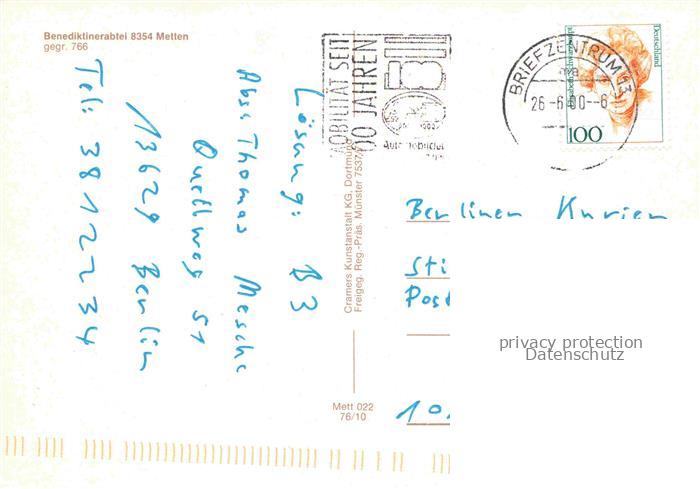 Benediktinerabtei 8354 Metten
gegr. 766
Lösung: B3
Abs: Thomas Mesche
Quellweg 51
13629 Berlin
Tel: 3812234
Cramers Kunstanstalt KG, Dortmund
Freigeg. Reg.-Präs. Münster 7537/
Mett 022
76/10
MOBILITÄT SEIT
100 JAHREN
BRIEFZENTRUM 13
26-6.00--6
Deutschland
100
Berliner Kurier
Sti
Post
10
privacy protection
Datenschutz